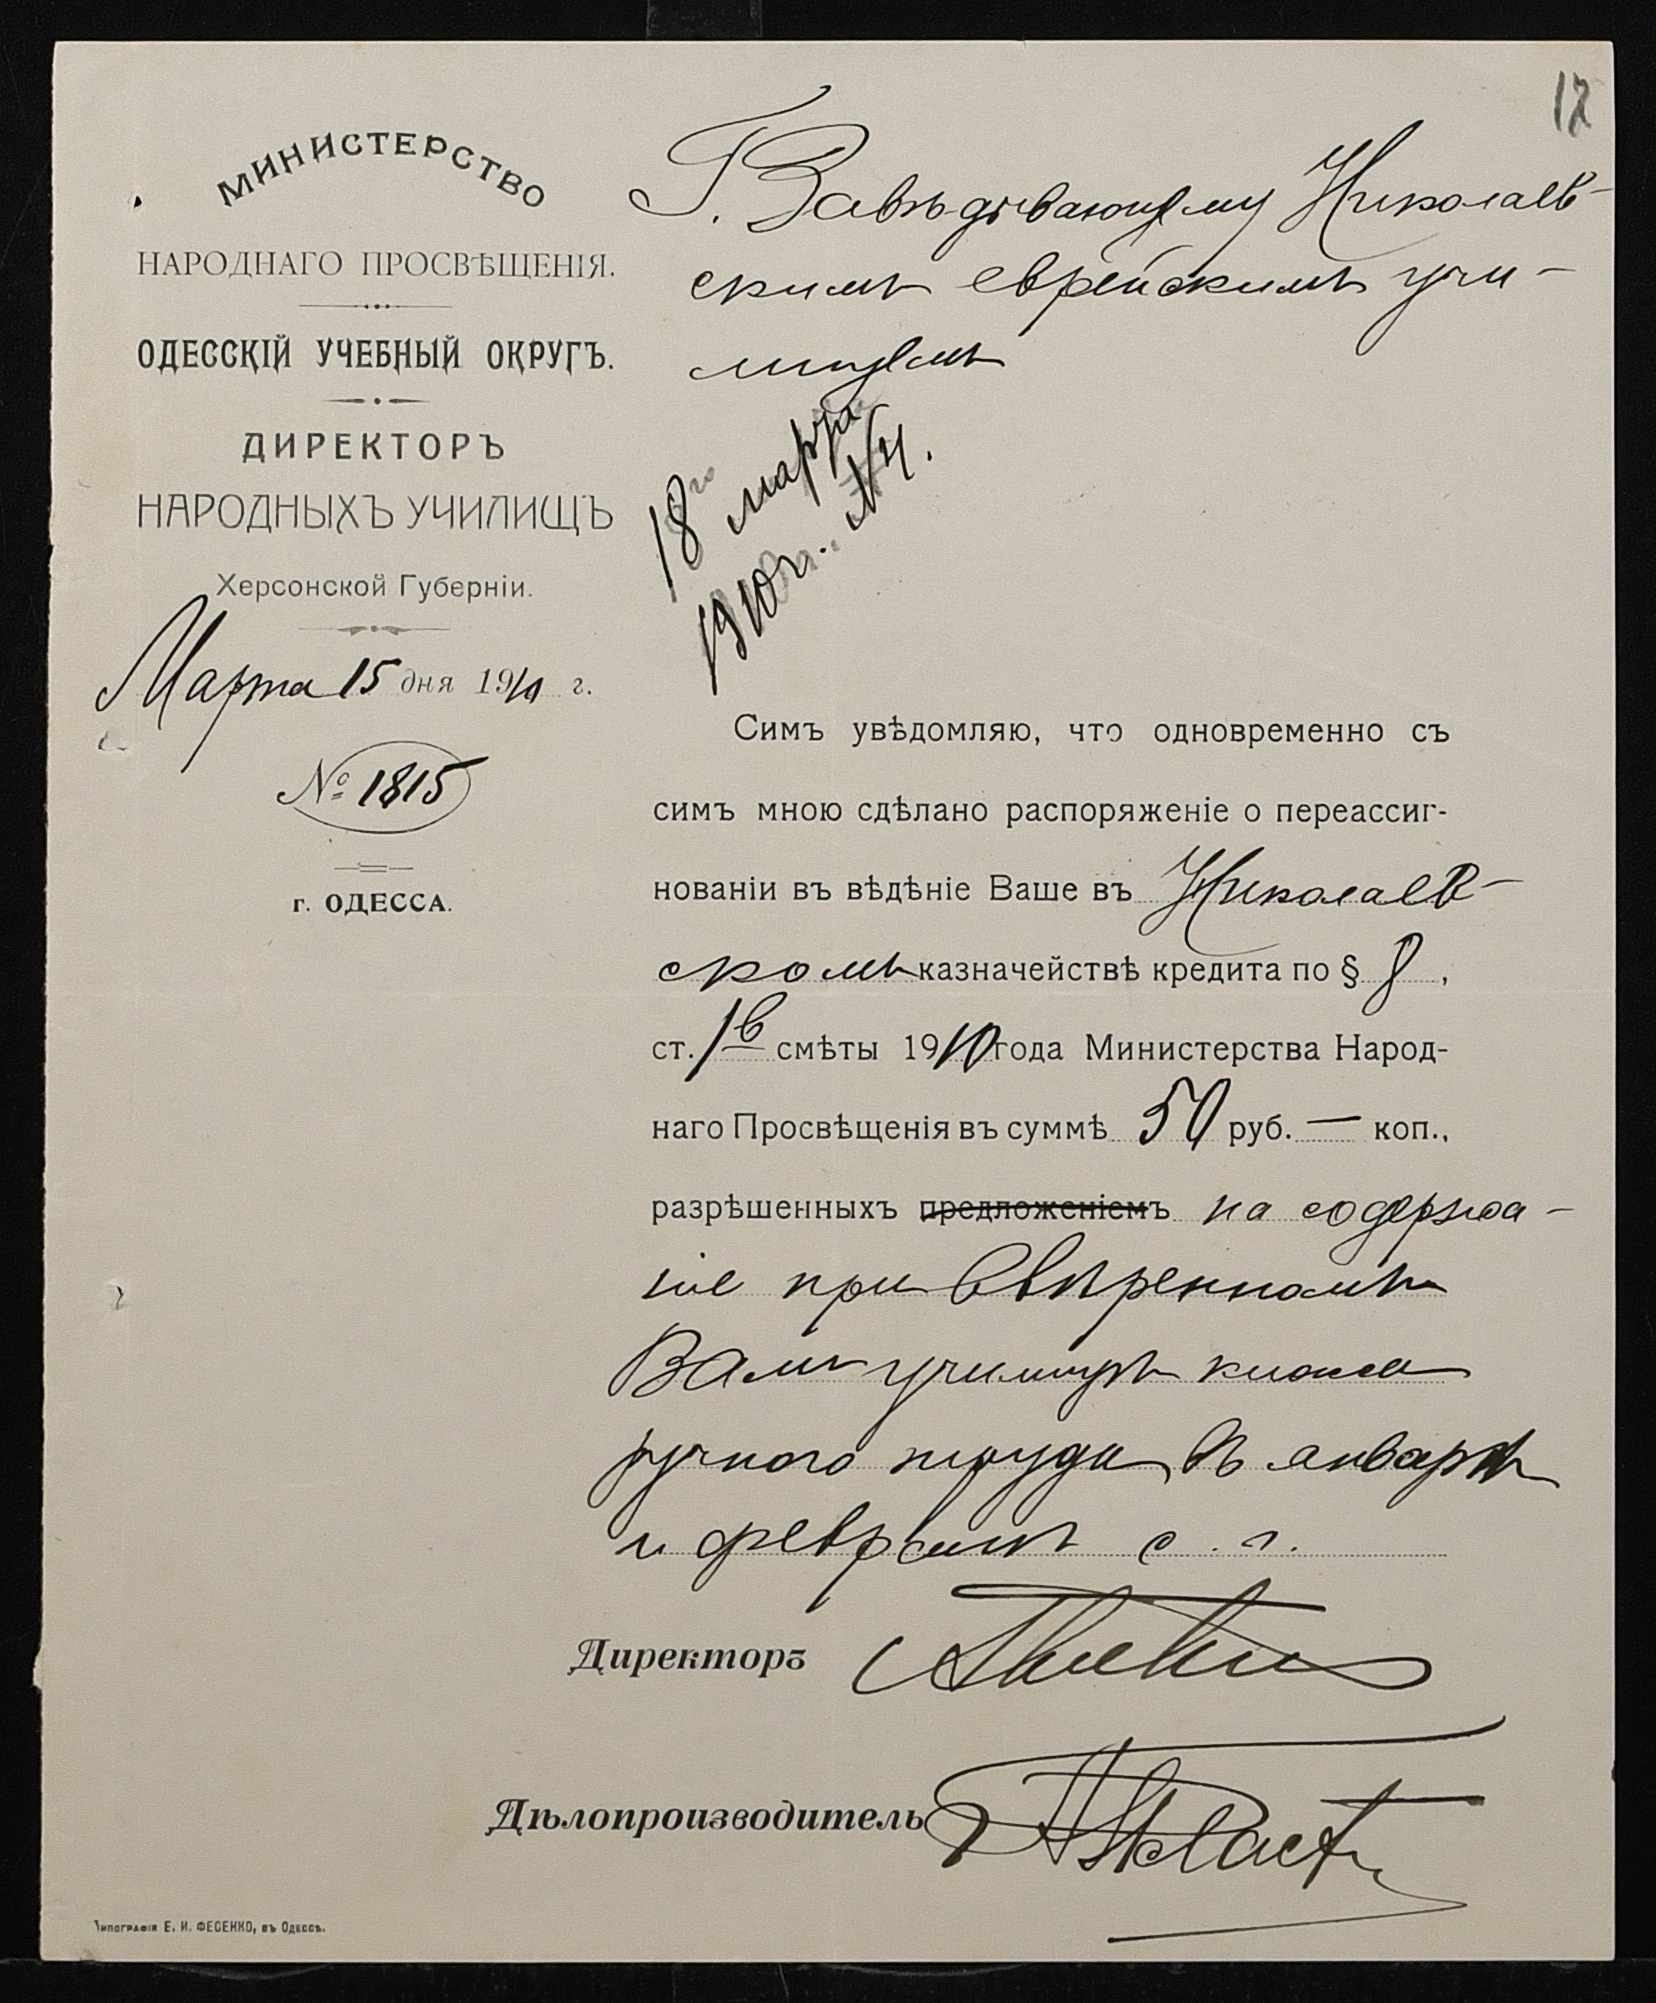 12
МИНИСТЕРСТВО
НАРОДНАГО ПРОСВѢЩЕНІЯ.
ОДЕССКІЙ УЧЕБНЫЙ ОКРУГЪ.
ДИРЕКТОРЪ
НАРОДНЫХЪ УЧИЛИЩЪ
Херсонской Губерніи.
Марта 15 дня 1910 г.
№ 1815
г. ОДЕССА.
Г. Завѣдывающему Николаев-
скимъ еврейскимъ учи-
лищемъ
18го марта
1910 г. №4.
Симъ увѣдомляю, что одновременно съ
симъ мною сдѣлано распоряженіе о переассиг-
нованіи въ вѣдѣніе Ваше въ Николаев-
скомъ казначействѣ кредита по § 8,
ст. 1в смѣты 1910 года Министерства Народ-
наго Просвѣщенія въ суммѣ 50 руб. — коп.,
разрѣшенныхъ предложеніемъ на содержа-
ніе при ввѣренномъ
Вамъ училищѣ класса
ручного труда въ январѣ
и февралѣ с. г.
Директоръ
Дѣлопроизводитель
Типографія Е. И. ФЕСЕНКО, въ Одессѣ.